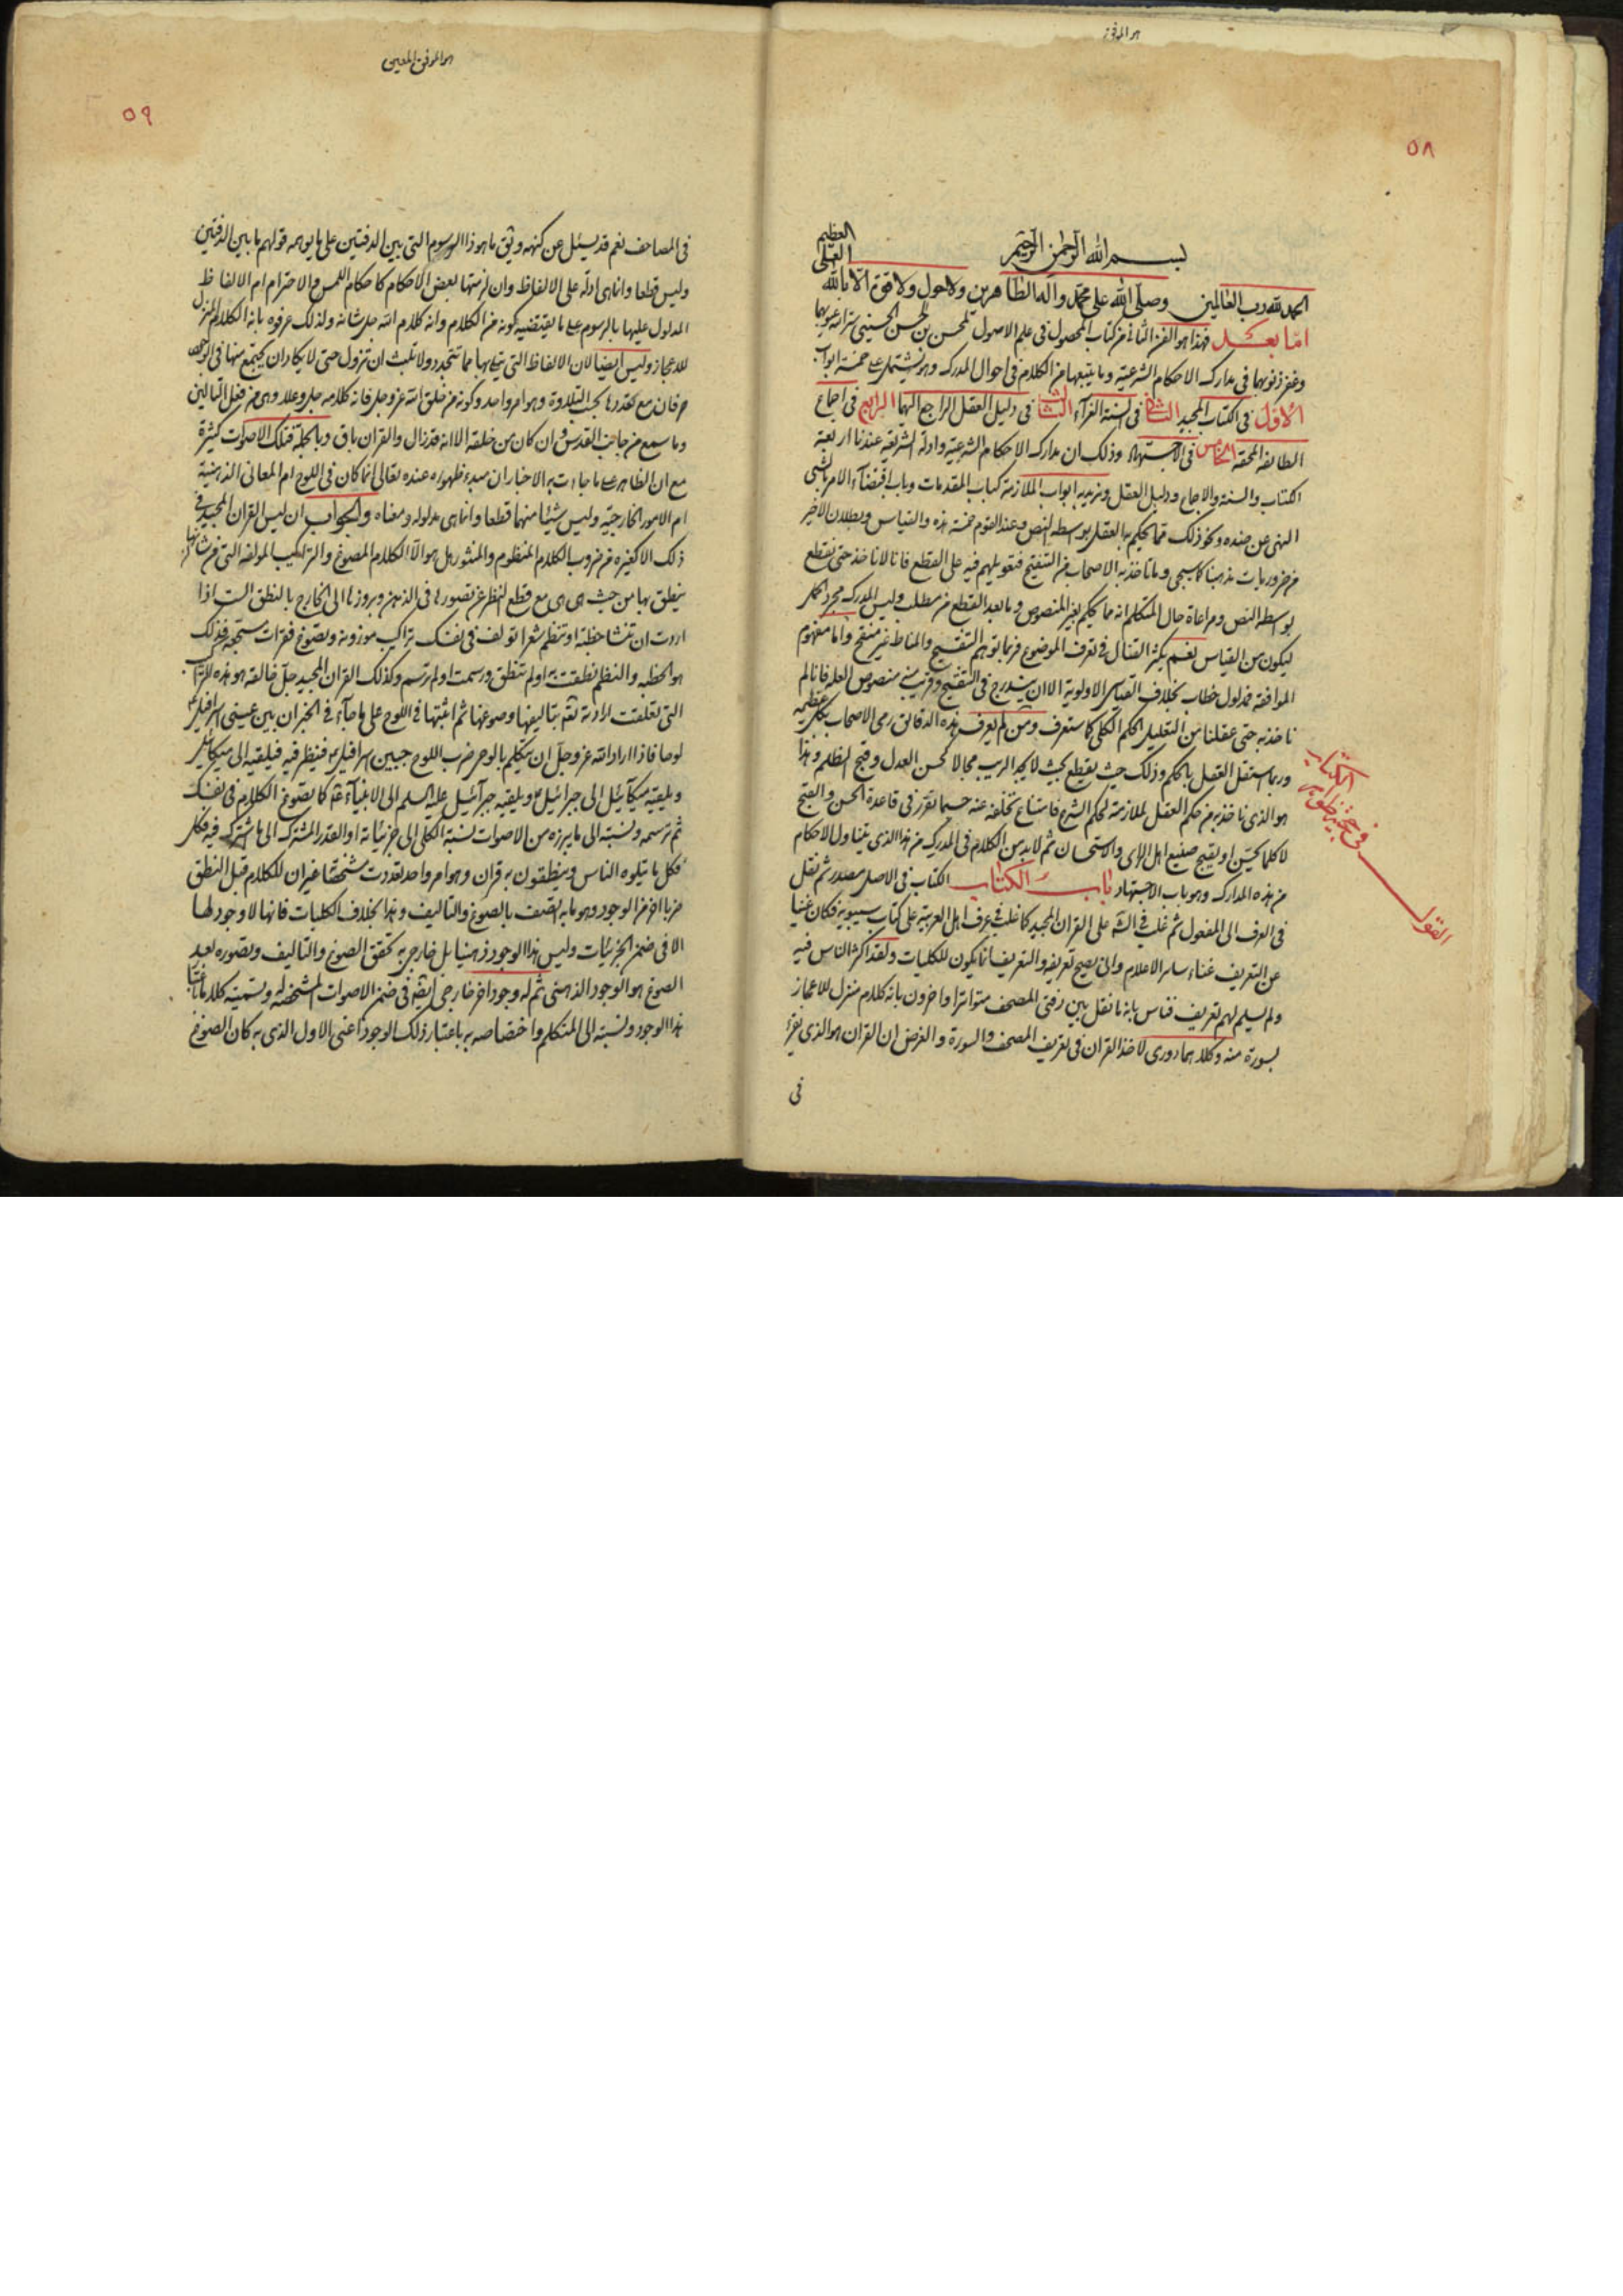 هو الموفق
٥٨
بسم الله الرحمن الرحيم
الحمد لله رب العالمين وصلى الله على محمد وآله الطاهرين ولا حول ولا قوة الا بالله
العلى
العظيم
اما بعد فهذا هو الفن الثانى من كتاب المحصول فى علم الاصول لمحسن بن الحسن الحسينى ستر الله عيوبهما
وغفر ذنوبهما فى مدارك الاحكام الشرعية وما يتبعها من الكلام فى احوال المدرك وهو يشتمل على خمسة ابواب
الاول فى الكتاب المجيد الثانى فى السنة الغرآء الثالث فى دليل العقل الراجع اليهما الرابع فى اجماع
الطائفة المحقة الخامس فى الاجتهاد وذلك ان مدارك الاحكام الشرعية وادلة الشريعة عندنا اربعة
الكتاب والسنة والاجماع ودليل العقل ونريد به ابواب الملازمة كباب المقدمات وباب اقتضآء الامر بالشىء
النهى عن ضده ونحو ذلك مما يحكم به العقل بواسطة النص وعند القوم خمسة هذه والقياس وبطلان الاخير
من ضروريات مذهبنا كما سيجى وما تاخذ به الاصحاب من التنقيح فتعويلهم فيه على القطع فانا لا ناخذ حتى نقطع
بواسطة النص ومراعاة حال المتكلم انه مما يحكم بغير المنصوص وما بعد القطع من مطلب وليس المدرك مجرد الحكم
ليكون من القياس نعم يكثر المقال فى تعرف الموضوع فربما توهم التنقيح والمناط غير منقح واما مفهوم
الموافقة فمدلول خطاب بخلاف القياس الاولوية الا ان يندرج فى التنقيح وقريب منه منصوص العلة فانا لم
ناخذ به حتى عقلنا من التعليل الحكم الكلى كما ستعرف ومن لم يعرف هذه الدقائق رمى الاصحاب بكل عظيمة
وربما استقل العقل بالحكم وذلك حيث يقطع بحيث لا يجد الريب مجالا كحسن العدل وقبح الظلم وهذا
هو الذى ناخذ به من حكم العقل لملازمته لحكم الشرع فامتناع تخلفه عنه حسبما تقرر فى قاعدة الحسن والقبح
لا كلما يحسن او يقبح صنيع اهل الراى والاستحسان ثم لا بد من الكلام فى المدرك من هذا الذى يتناول الاحكام
من هذه المدارك وهو باب الاجتهاد باب الكتاب الكتاب فى الاصل مصدر ثم نقل
فى العرف الى المفعول ثم غلب فى الشرع على القران المجيد كما غلب فى عرف اهل العربية على كتاب سيبويه فكان غنيا
عن التعريف غناء ساير الاعلام وانى يصح تعريفه والتعريف انما يكون للكليات ولقد اكثر الناس فيه
ولم يسلم لهم تعريف فناس بانه ما نقل بين دفتى المصحف متواترا واخرون بانه كلام منزل للاعجاز
بسورة منه وكلاهما دورى لاخذ القران فى تعريف المصحف والسورة والغرض ان القران هو الذى يقرء
فى
القول فى حجية ظواهر الكتاب
هو الموفق المعين
٥٩
فى المصاحف نعم قد يسئل عن كنهه وبثق ما هو ذا الرسوم التى بين الدفتين على ما يوهمه قولهم ما بين الدفتين
وليس قطعا وانما هى ادلة على الالفاظ وان لزمتها بعض الاحكام كاحكام اللمس والاحترام ام الالفاظ
المدلول عليها بالرسوم على ما يقتضيه كونه من الكلام وانه كلام الله جل شانه ولذلك عرفوه بانه الكلام المنزل
للاعجاز وليس ايضا لان الالفاظ التى يتلى بها مما تتجدد ولا تلبث ان تزول حتى لا يكاد ان يجتمع منها فى الوجود
حرفان مع تعددها بحسب التلاوة وهو امر واحد وكونه من خلق الله عز وجل فانه كلامه جل وعلا وهى من فعل التالين
وما سمع من جانب القدس وان كان من خلقه الا انه قد زال والقران باق وبالجملة فتلك الاصوات كثيرة
مع ان الظاهر على ما جاءت به الاخبار ان مبدء ظهوره عنده تعالى انما كان فى اللوح ام المعانى الذهنية
ام الامور الخارجية وليس شيئا منهما قطعا وانما هى مدلوله ومعناه والجواب ان ليس القران المجيد فى
ذلك الا كغيره من ضروب الكلام المنظوم والمنثور بل هو الا الكلام المصوغ والتراكيب المولفة التى من شانها ان
ينطق بها من حيث هى هى مع قطع النظر عن تصورها فى الذهن وبروزها الى الخارج بالنطق الست اذا
اردت ان تنشا خطبة او تنظم شعرا تولف فى نفسك تراكيب موزونة وتصوغ فقرات مسجعة فذلك
هو الخطبة والنظم نطقت به او لم تنطق ورسمت او لم ترسم وكذلك القران المجيد جل خالقه هو هذه التراكيب
التى تعلقت ارادته تعم بتاليفها وصوغها ثم اثبتها فى اللوح على ما جآء فى الخبر ان بين عينى اسرافيل
لوحا فاذا اراد الله عز وجل ان يتكلم بالوحى ضرب اللوح جبين اسرافيل فينظر فيه فيلقيه الى ميكائيل
ويلقيه ميكآئيل الى جبرائيل ويلقيه جبرآئيل عليه السلم الى الانبيآء كما تصوغ الكلام فى نفسك
ثم ترسمه ونسبته الى ما يبرزه من الاصوات نسبة الكلى الى جزئياته او القدر المشترك الى ما اشترك فيه فكل
فكل ما يتلوه الناس وينطقون به قران وهو امر واحد تعددت مشخصاته غير ان للكلام قبل النطق
ضربا اخر من الوجود وهو ما به اتصف بالصوغ والتاليف وهذا بخلاف الكليات فانها لا وجود لها
الا فى ضمن الجزئيات وليس هذا الوجود ذهنيا بل خارجى به تحقق الصوغ والتاليف وتصوره بعد
الصوغ هو الوجود الذهنى ثم له وجود اخر خارجى ايضا فى ضمن الاصوات المشخصة له وتسميته كلاما
هذا الوجود ونسبته الى المتكلم واختصاصه به باعتبار ذلك الوجود اعنى الاول الذى به كان الصوغ